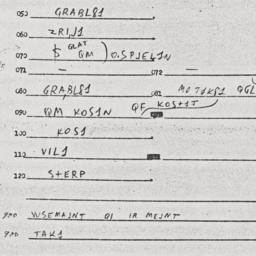 050 GRABL81
060 ZRIJ1
GLAT
070 $ GM ) O.SPJEL1N
071 — 072 —
080 GRABL81 081
090 QM KOS1N QF KOS+1T
100 KOS1
110 VIL1
120 S+ERP
900 VUSEMAINT QI IR MEINT
900 TAK1